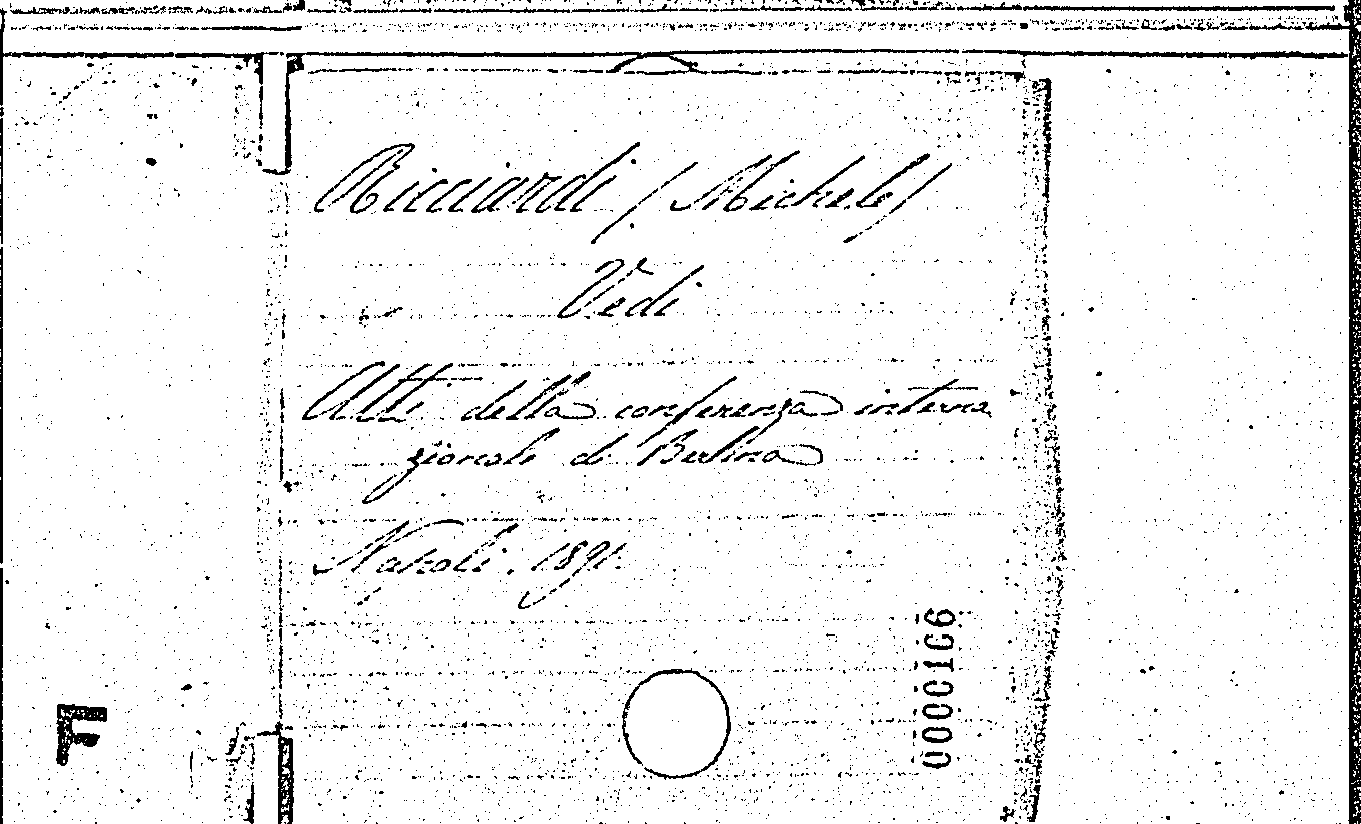 Ricciardi (Michele)
Vedi
Atti della conferenza interna
zionale di Berlino
Napoli. 1891.
0000166
F